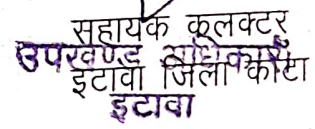 सहायक कलक्टर
उपखण्ड अधिकारी
इटावा जिला कोटा
इटावा